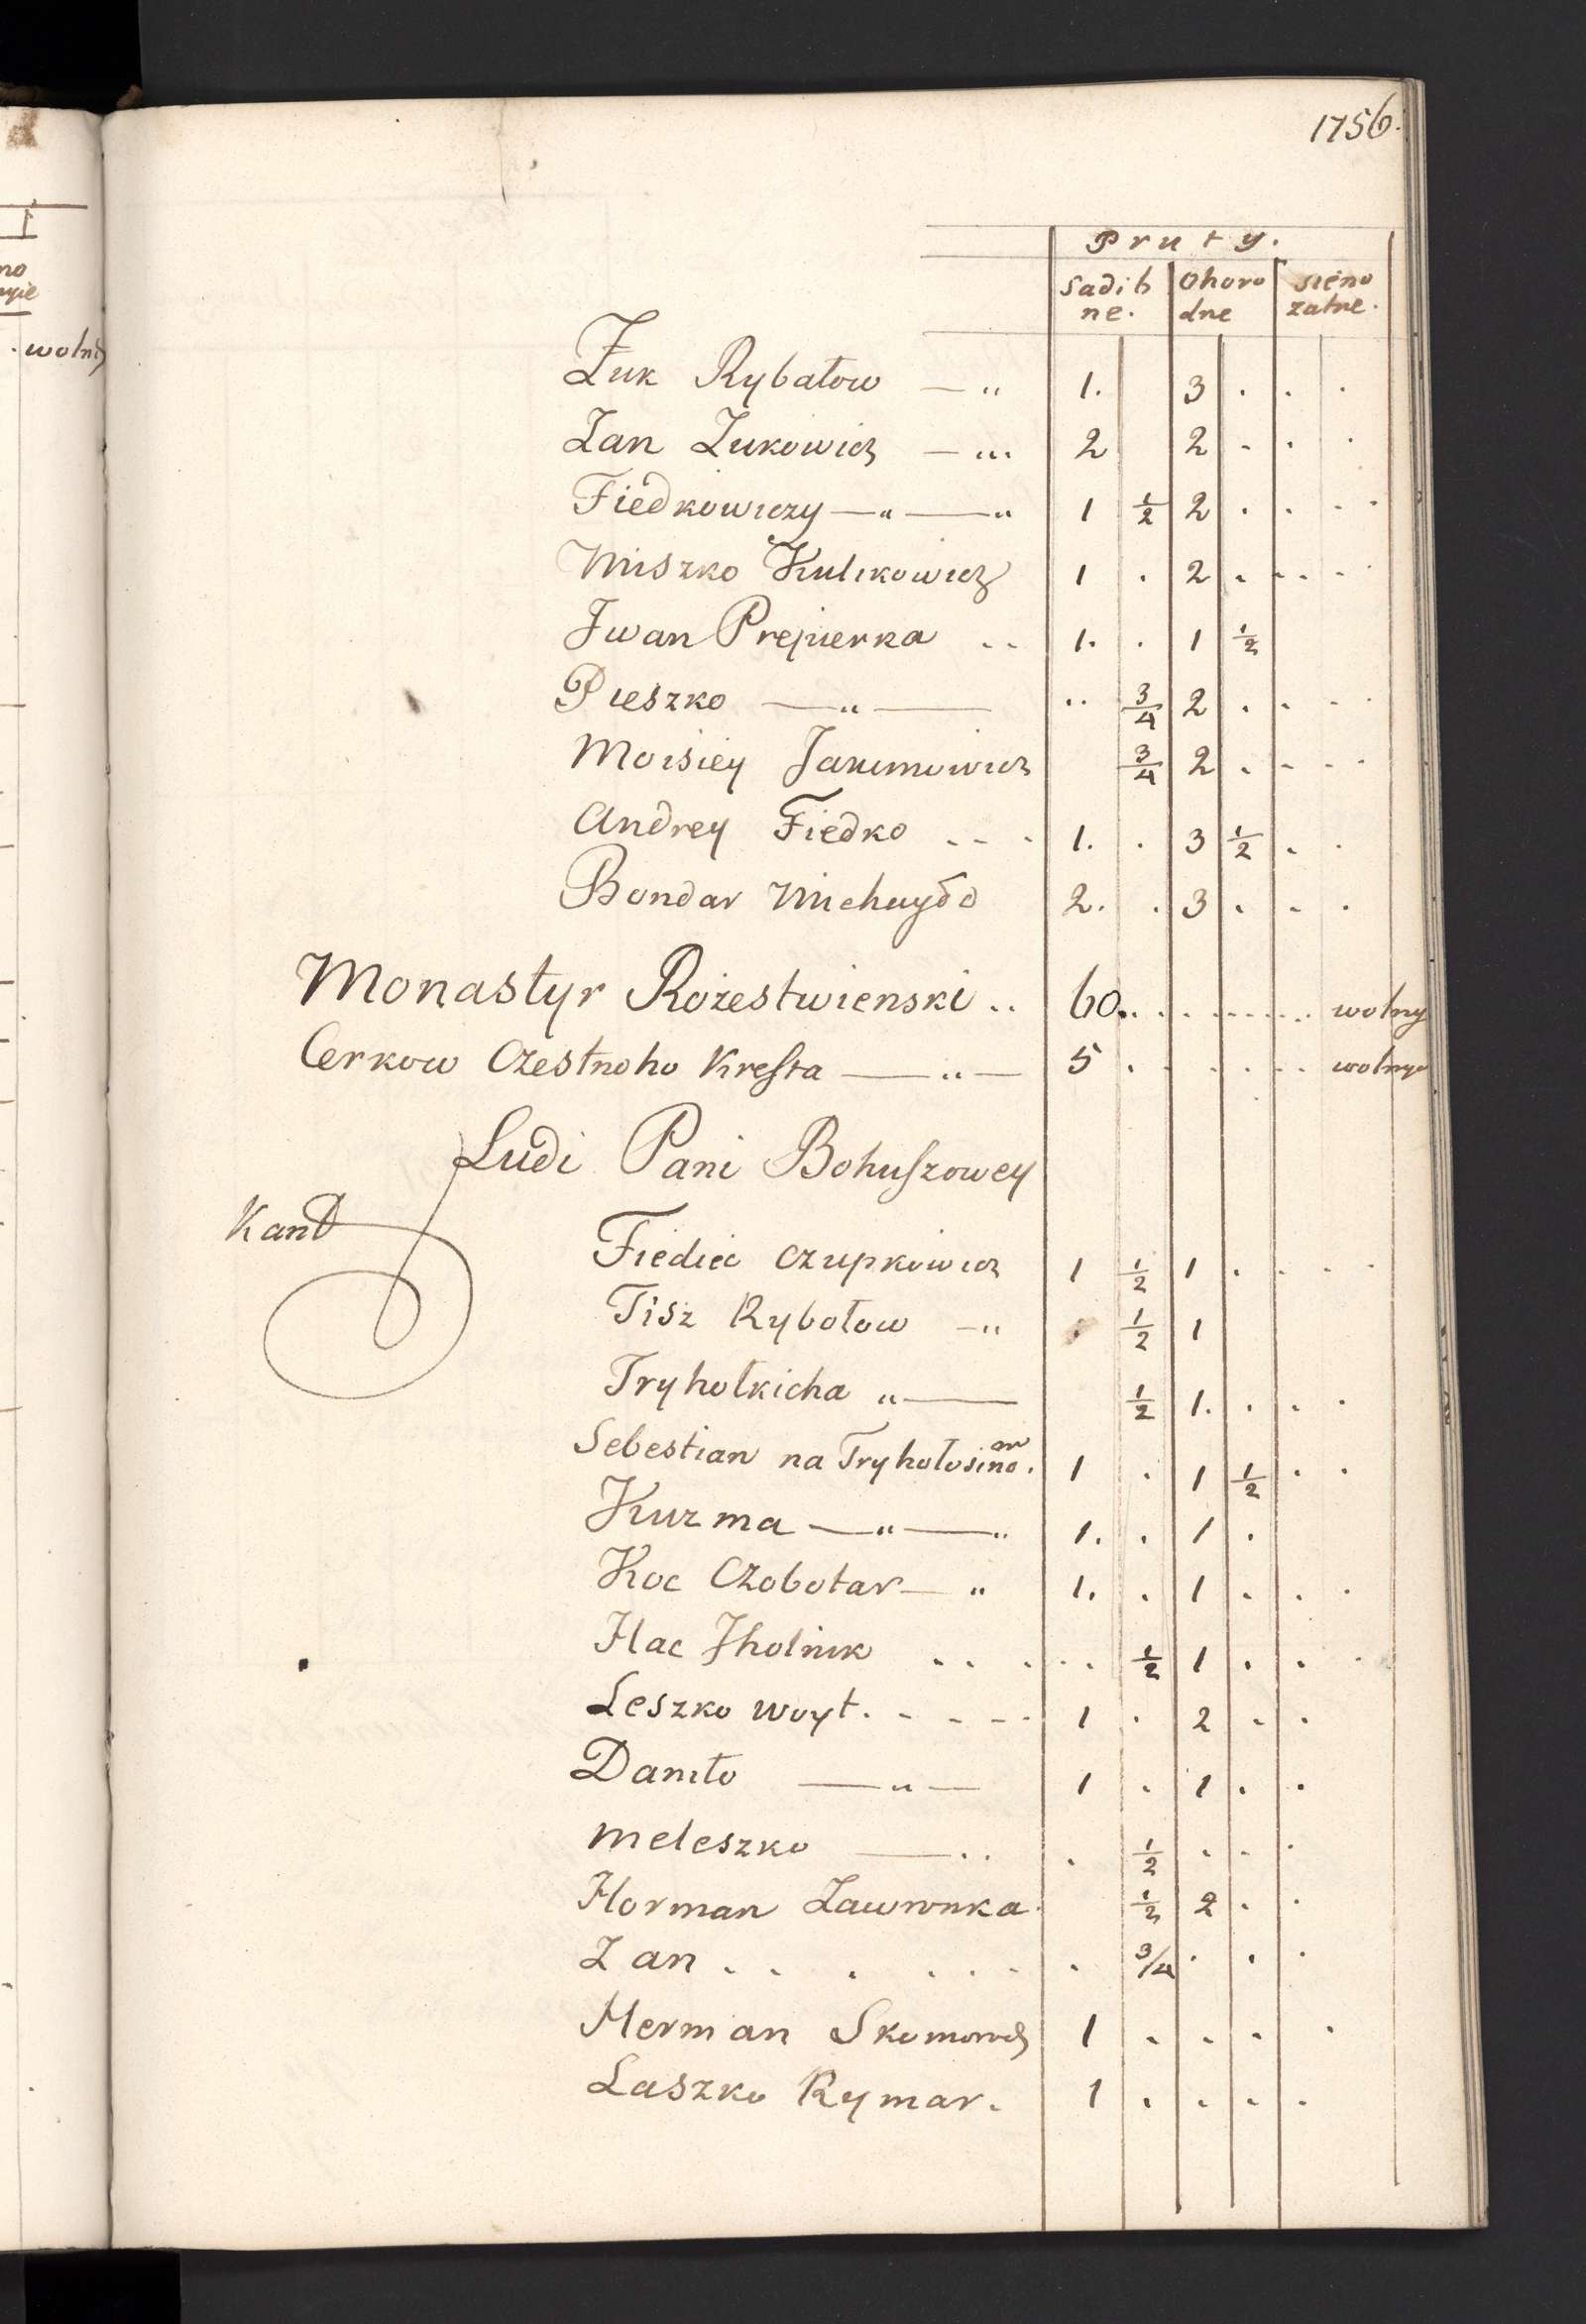 1756.
Pruty.
Sadib Ohoro sieno
ne. dne zatne.
Żuk Rybałow — " 1. 3 . . .
Zan Zukowicz — ... 2 2 . . .
Fiedkowiczy — " — " 1 1/2 2 . . . .
Miszko Kulikowicz 1 . 2 . . . . .
Jwan Prejuerka .. 1. . 1 1/2
Pieszko — " — .. 3/4 2 . . . .
Moisiey Jakimowicz 3/4 2 . . . .
Andrey Fiedko . . . 1. . 3 1/2 . .
Bondar Michayło 2. . 3 . . .
Monastyr Rożestwienski .. 60. . . . . . . wolny
Cerkow Czestnoho Kresta — " — 5 . . . . . . wolnya
Ludi Pani Bohuszowey
Kant
Fiediec Czupkowicz 1 1/2 1 . . . .
Tisz Rybołow — " . 1/2 1
Tryhołkicha " — 1/2 1. . . .
Sebestian na Tryhołosino. 1 . 1 1/2 . .
Kuzma — " — " 1. . 1 .
Koc Czobotar — " 1. . 1 . . .
Hac Jholnik . . . . . 1/2 1 . . .
Leszko woyt . - - - - 1 . 2 . .
Daniło — " — 1 . 1 . .
Meleszko — . . . 1/2 . . .
Horman Ławrynka. 1/2 2 . .
Zan . . . . . . . 3/4 . . .
Herman 1 . . . .
Laszko Rymar. 1 . . . .
no
nyie
. wolny